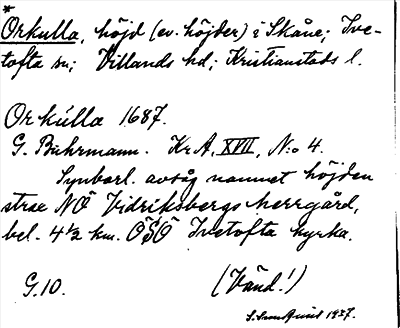 *
Orkulla, höjd (ev. höjder) i Skåne; Ive-
tofta sn; Villands hd; Kristianstads l.
Orkúlla 1687.
G. Buhrmann. Kr.A, XVII, N:o 4.
Synbarl. avsåg namnet höjden
strax NÖ Vidriksbergs herrgård,
bel. 4½ km. ÖSÖ Ivetofta kyrka.
G.10. (Vänd!)
1937.